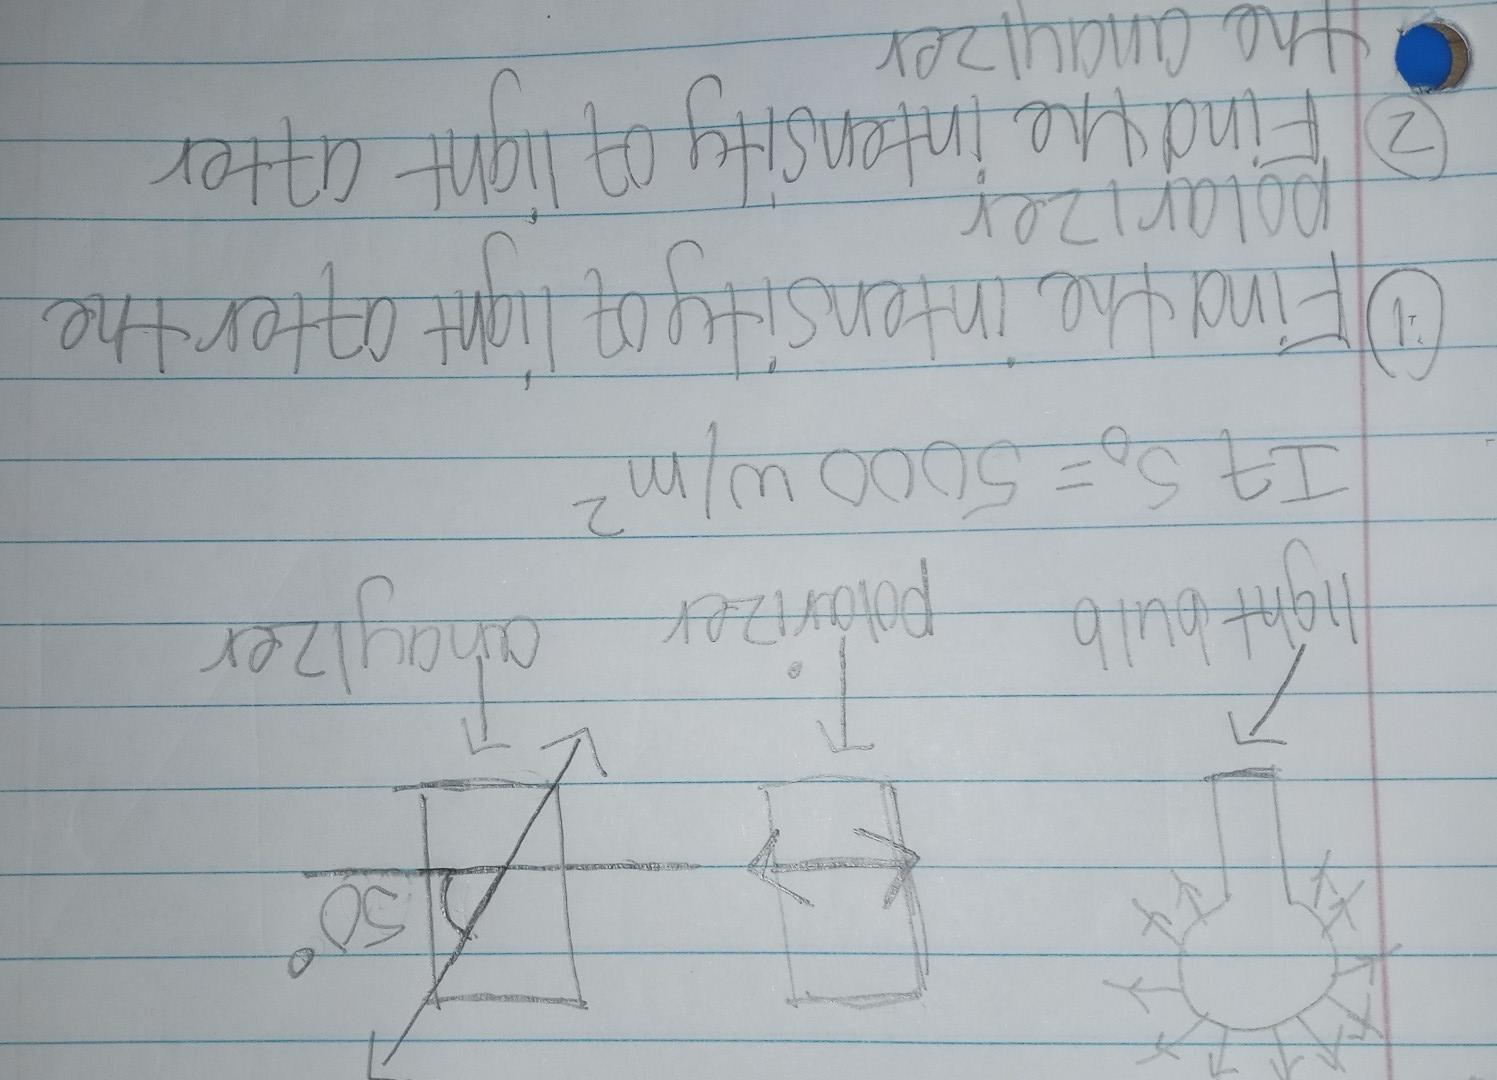 50°
light bulb polarizer anaylzer
If S₀ = 5000 w/m²
① Find the intensity of light after the
polarizer
② Find the intensity of light after
the anaylzer